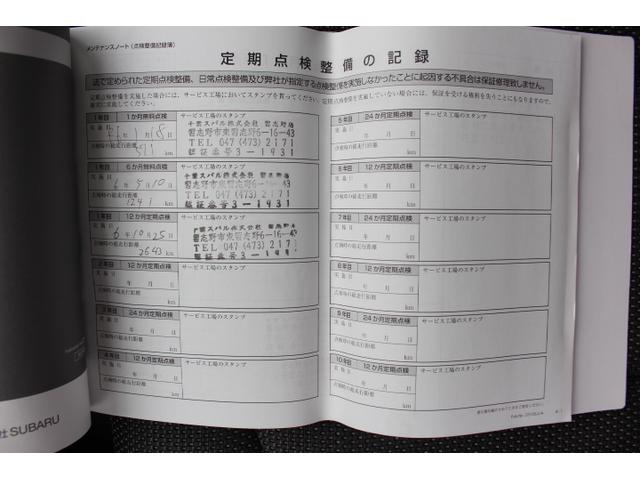 メンテナンスノート（点検整備記録簿）
定期点検整備の記録
法で定められた定期点検整備、日常点検整備及び弊社が指定する点検整備を実施しなかったことに起因する不具合は保証修理致しません。
定期点検整備を実施した場合には、サービス工場においてスタンプを貰ってください。
定期点検整備を実施していない場合には、保証を受ける権利を失うことにもなりますので、
確実に実施してください。
1年目 1か月無料点検 サービス工場のスタンプ
実施日
6年1月18日
点検時の総走行距離
km
千葉スバル株式会社 習志野店
習志野市東習志野6-16-43
TEL 047 (473) 2171
認証番号3-1931
1年目 6か月無料点検 サービス工場のスタンプ
実施日
6年5月10日
点検時の総走行距離
1241 km
千葉スバル株式会社 習志野店
習志野市東習志野6-16-43
TEL 047 (473) 2171
認証番号3-1931
1年目 12か月定期点検 サービス工場のスタンプ
実施日
6年10月25日
点検時の総走行距離
2643 km
千葉スバル株式会社 習志野店
習志野市東習志野6-16-43
TEL 047 (473) 2171
認証番号3-1931
2年目 12か月定期点検 サービス工場のスタンプ
実施日
年 月 日
点検時の総走行距離
km
3年目 24か月定期点検 サービス工場のスタンプ
実施日
年 月 日
点検時の総走行距離
km
4年目 12か月定期点検 サービス工場のスタンプ
実施日
年 月 日
点検時の総走行距離
km
5年目 24か月定期点検 サービス工場のスタンプ
実施日
年 月 日
点検時の総走行距離
km
5年目 12か月定期点検 サービス工場のスタンプ
実施日
年 月 日
点検時の総走行距離
km
7年目 24か月定期点検 サービス工場のスタンプ
実施日
年 月 日
点検時の総走行距離
km
8年目 12か月定期点検 サービス工場のスタンプ
実施日
年 月 日
点検時の総走行距離
km
9年目 24か月定期点検 サービス工場のスタンプ
実施日
年 月 日
点検時の総走行距離
km
10年目 12か月定期点検 サービス工場のスタンプ
実施日
年 月 日
点検時の総走行距離
km
社 SUBARU